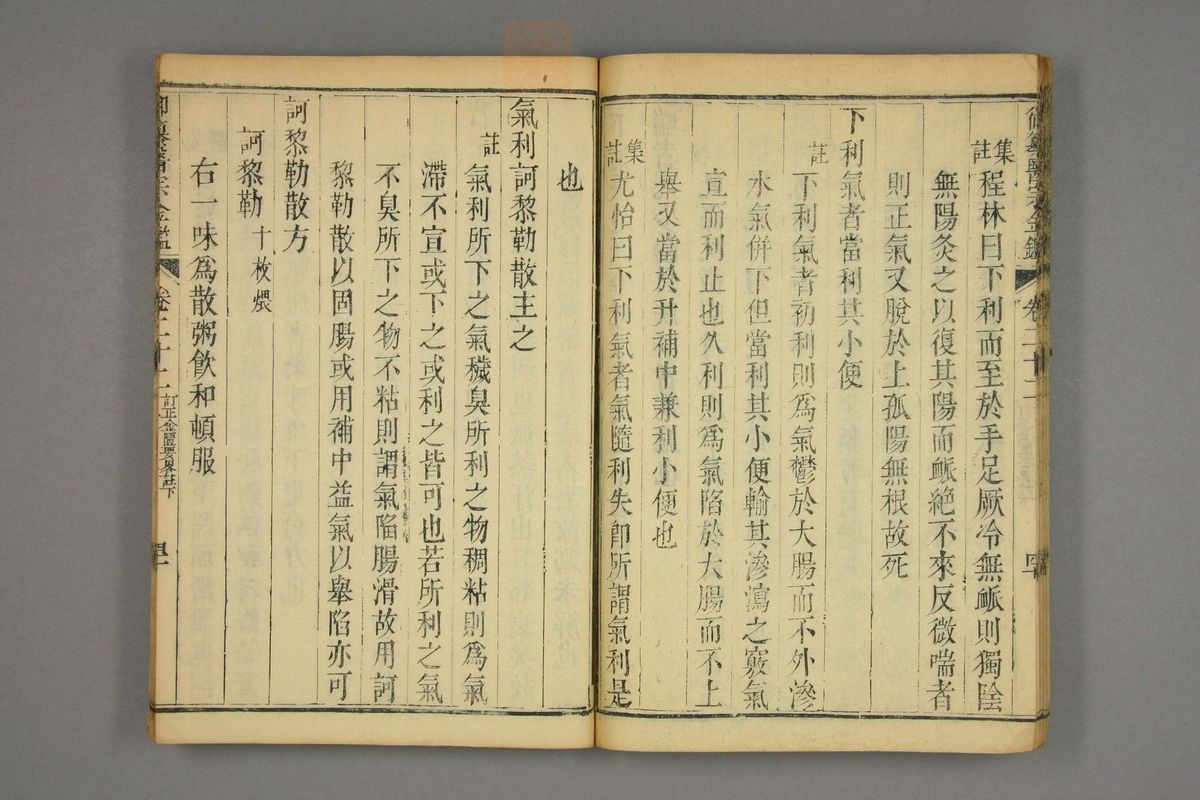 御纂醫宗金鑑 卷二十二 四十
集註 程林曰下利而至於手足厥冷無脈則獨陰
無陽灸之以復其陽而脈絕不來反微喘者
則正氣又脫於上孤陽無根故死
下利氣者當利其小便
註 下利氣者初利則爲氣鬱於大腸而不外滲
水氣併下但當利其小便輸其滲瀉之竅氣
宣而利止也久利則爲氣陷於大腸而不上
舉又當於升補中兼利小便也
集註 尤怡曰下利氣者氣隨利失卽所謂氣利是
也
氣利訶黎勒散主之
註 氣利所下之氣穢臭所利之物稠粘則爲氣
滯不宣或下之或利之皆可也若所利之氣
不臭所下之物不粘則謂氣陷腸滑故用訶
黎勒散以固腸或用補中益氣以舉陷亦可
訶黎勒散方
訶黎勒十枚煨
右一味爲散粥飲和頓服
御纂醫宗金鑑 卷二十二 訂正金匱要畧註下